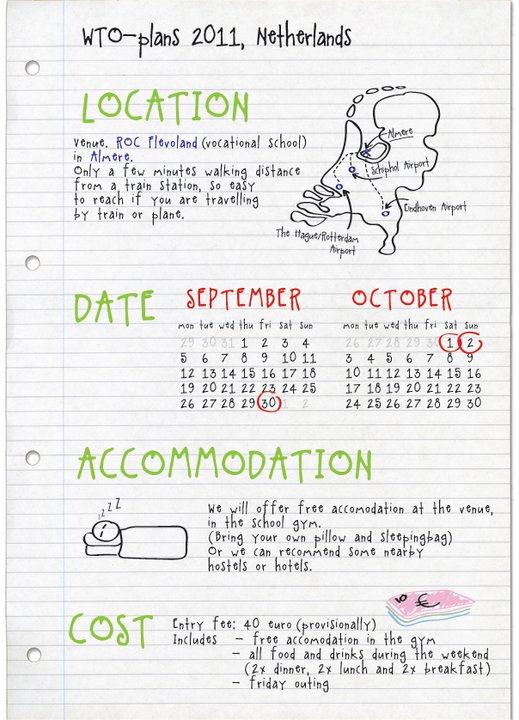 WTO-plans 2011, Netherlands
LOCATION
venue. ROC Flevoland (vocational school)
in Almere.
Only a few minutes walking distance
from a train station, so easy
to reach if you are travelling
by train or plane.
Almere
Schiphol Airport
Eindhoven Airport
The Hague/Rotterdam
Airport
DATE
SEPTEMBER
mon tue wed thu fri sat sun
29 30 31 1 2 3 4
5 6 7 8 9 10 11
12 13 14 15 16 17 18
19 20 21 22 23 24 25
26 27 28 29 30 1 2
OCTOBER
mon tue wed thu fri sat sun
26 27 28 29 30 1 2
3 4 5 6 7 8 9
10 11 12 13 14 15 16
17 18 19 20 21 22 23
24 25 26 27 28 29 30
ACCOMMODATION
z z z z
We will offer free accomodation at the venue,
in the school gym.
(Bring your own pillow and sleepingbag)
Or we can recommend some nearby
hostels or hotels.
COST
€
Entry fee: 40 euro (provisionally)
Includes - free accomodation in the gym
- all food and drinks during the weekend
(2x dinner, 2x lunch and 2x breakfast)
- friday outing